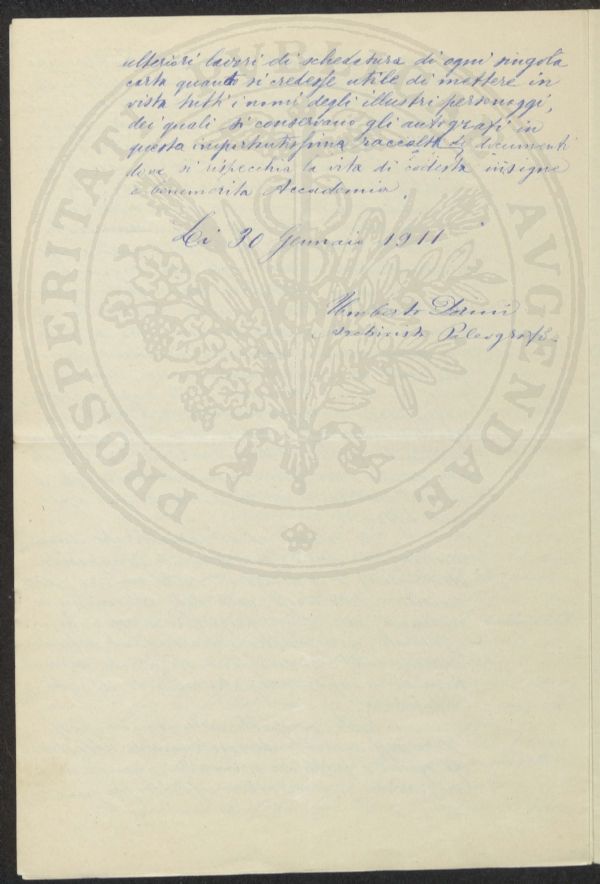 ulteriori lavori di schedatura di ogni singola
carta quanto si credesse utile di mettere in
vista tutti i nomi degli illustri personaggi,
dei quali si conservano gli autografi in
questa importantissima raccolta di documenti
dove si rispecchia la vita di codesta insigne
e benemerita Accademia.
Li 30 Gennaio 1911
Umberto Dorini
Archivista Paleografo
PROSPERITATI PUBLICAE AVGENDAE